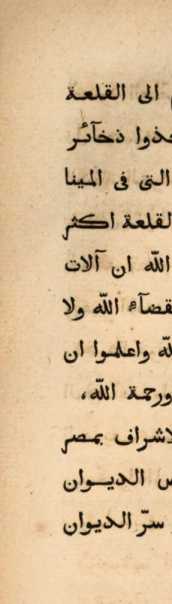 الى القلعة
ذخآئر
التى فى المينا
القلعة اكثر
الله ان آلات
الله ولا
واعلموا ان
ورحمة الله،
الاشراف بمصر
الديوان
سرّ الديوان